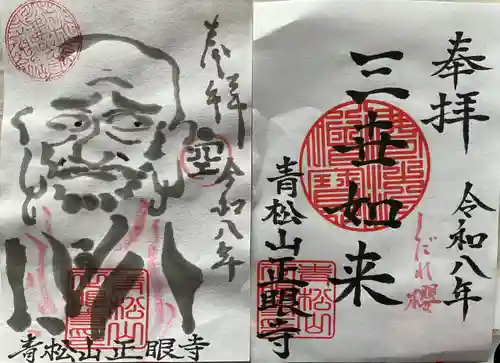 奉拝
空
令和八年
青松山正眼寺
奉拝
三世如来
令和八年
しだれ櫻
青松山
正眼寺